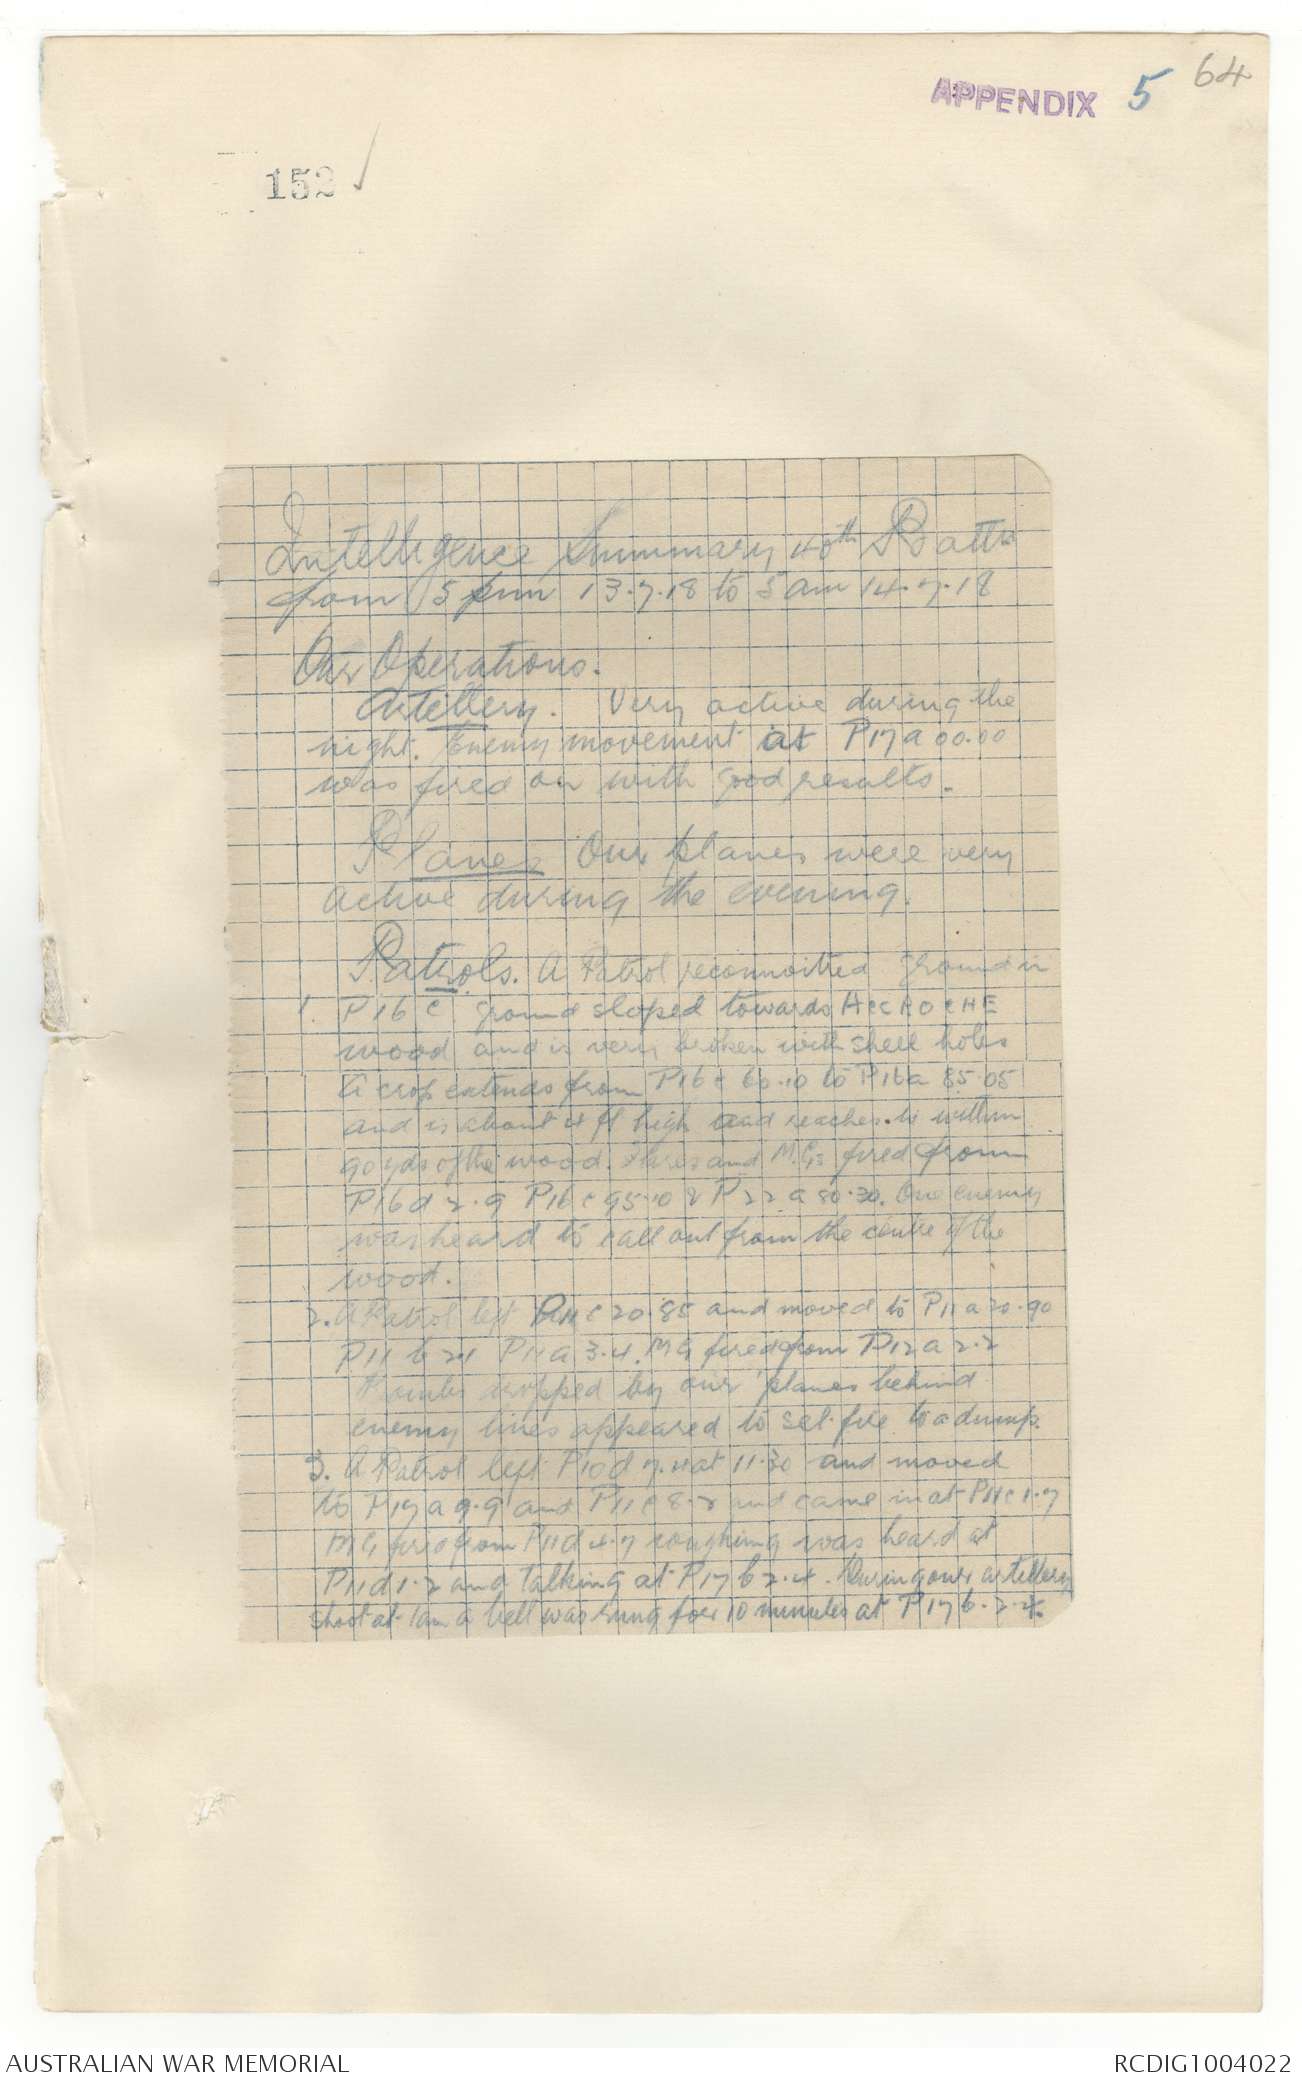 APPENDIX 5 64
152
Intelligence Summary 40th Battn
from 5 pm 13.7.18 to 5 am 14.7.18
Our Operations.
Artillery. Very active during the
night. Enemy movement at P17a 00.00
was fired on with good results.
Planes Our planes were very
active during the evening.
Patrols. A Patrol reconnoitred ground in
1. P16 c ground sloped towards ACCROCHE
wood and is very broken with shell holes
A crop extends from P16c 60.10 to P16a 85.05
and is about 4 ft high and reaches to within
90 yds of the wood. Flares and M.Gs fired from
P16d 2.9 P16c 95.10 & P22a 80.30. One enemy
was heard to call out from the centre of the
wood.
2. A Patrol left P11c 20.85 and moved to P11a 20.90
P11 b 2.1 P11a 3.4. MG fired from P12a 2.2
Bombs dropped by our planes behind
enemy lines appeared to set fire to a dump.
3. A Patrol left P10d 7.4 at 11.30 and moved
to P17a 9.9 and P11c 8.2 and came in at P11c 1.7
MG fired from P11d 4.7 coughing was heard at
P11d 1.2 and talking at P17b 2.4. During our artillery
shoot at 1am a bell was rung for 10 minutes at P17b.2.4.
AUSTRALIAN WAR MEMORIAL
RCDIG1004022